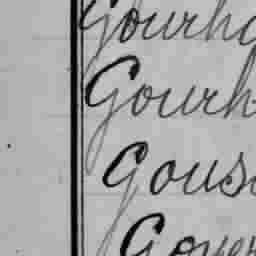 Gourha
Gourh
Gous
Gover